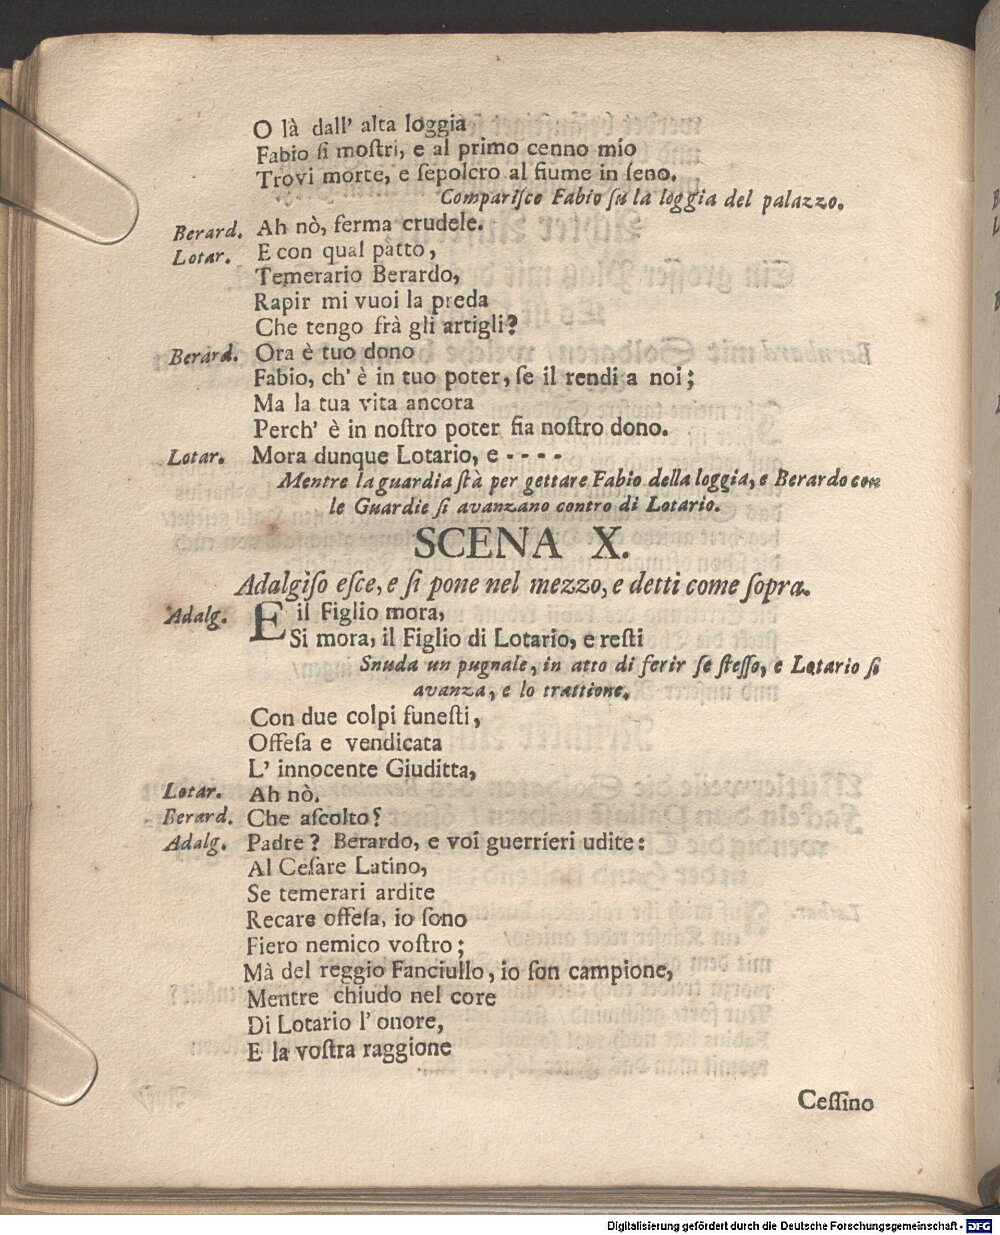 O là dall' alta loggia
Fabio ſi moſtri, e al primo cenno mio
Trovi morte, e ſepolcro al fiume in ſeno.
Compariſce Fabio ſu la loggia del palazzo.
Berard. Ah nò, ferma crudele.
Lotar. E con qual patto,
Temerario Berardo,
Rapir mi vuoi la preda
Che tengo frà gli artigli?
Berard. Ora è tuo dono
Fabio, ch' è in tuo poter, ſe il rendi a noi;
Ma la tua vita ancora
Perch' è in noſtro poter fia noſtro dono.
Lotar. Mora dunque Lotario, e - - - -
Mentre la guardia ſtà per gettare Fabio della loggia, e Berardo con
le Guardie ſi avanzano contro di Lotario.
SCENA X.
Adalgiſo eſce, e ſi pone nel mezzo, e detti come ſopra.
Adalg. E il Figlio mora,
Si mora, il Figlio di Lotario, e reſti
Snuda un pugnale, in atto di ferir ſe ſteſſo, e Lotario ſi
avanza, e lo trattione.
Con due colpi funeſti,
Offeſa e vendicata
L' innocente Giuditta,
Lotar. Ah nò.
Berard. Che aſcolto?
Adalg. Padre? Berardo, e voi guerrieri udite:
Al Ceſare Latino,
Se temerari ardite
Recare offeſa, io ſono
Fiero nemico voſtro;
Mà del reggio Fanciullo, io ſon campione,
Mentre chiudo nel core
Di Lotario l' onore,
E la voſtra raggione
Ceſſino
Digitalisierung gefördert durch die Deutsche Forschungsgemeinschaft - DFG